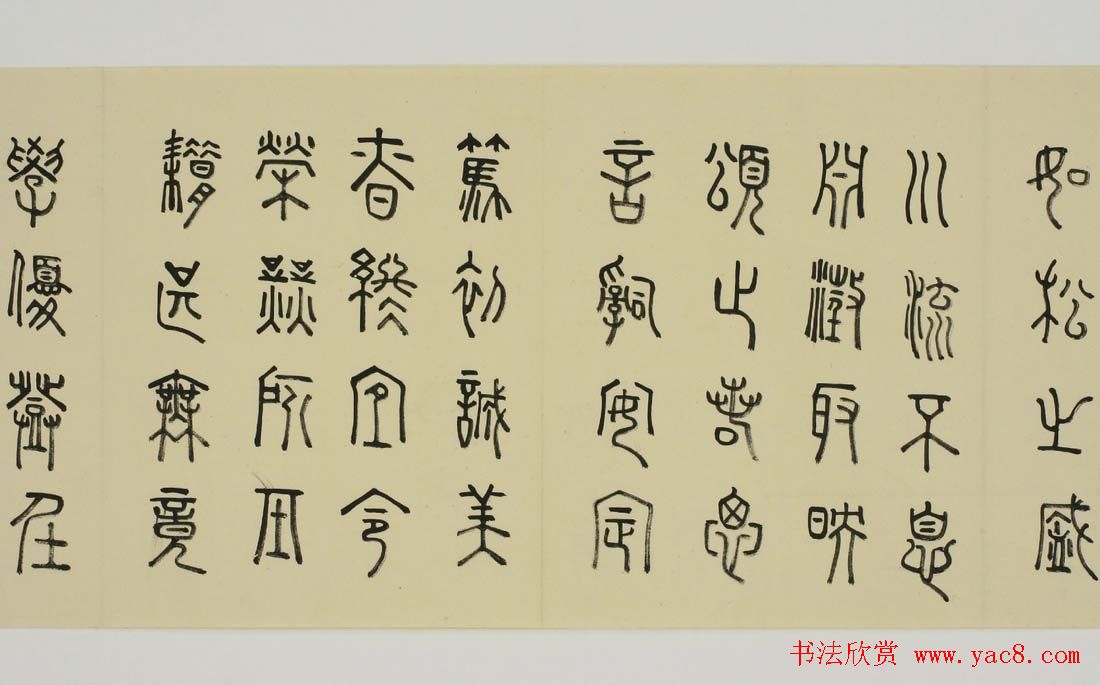 如松之盛
川流不息
淵澂取映
頌止若思
言辭安定
篤初誠美
昚終宜令
榮業所基
耤甚無竟
學優登仕
书法欣赏 www.yac8.com